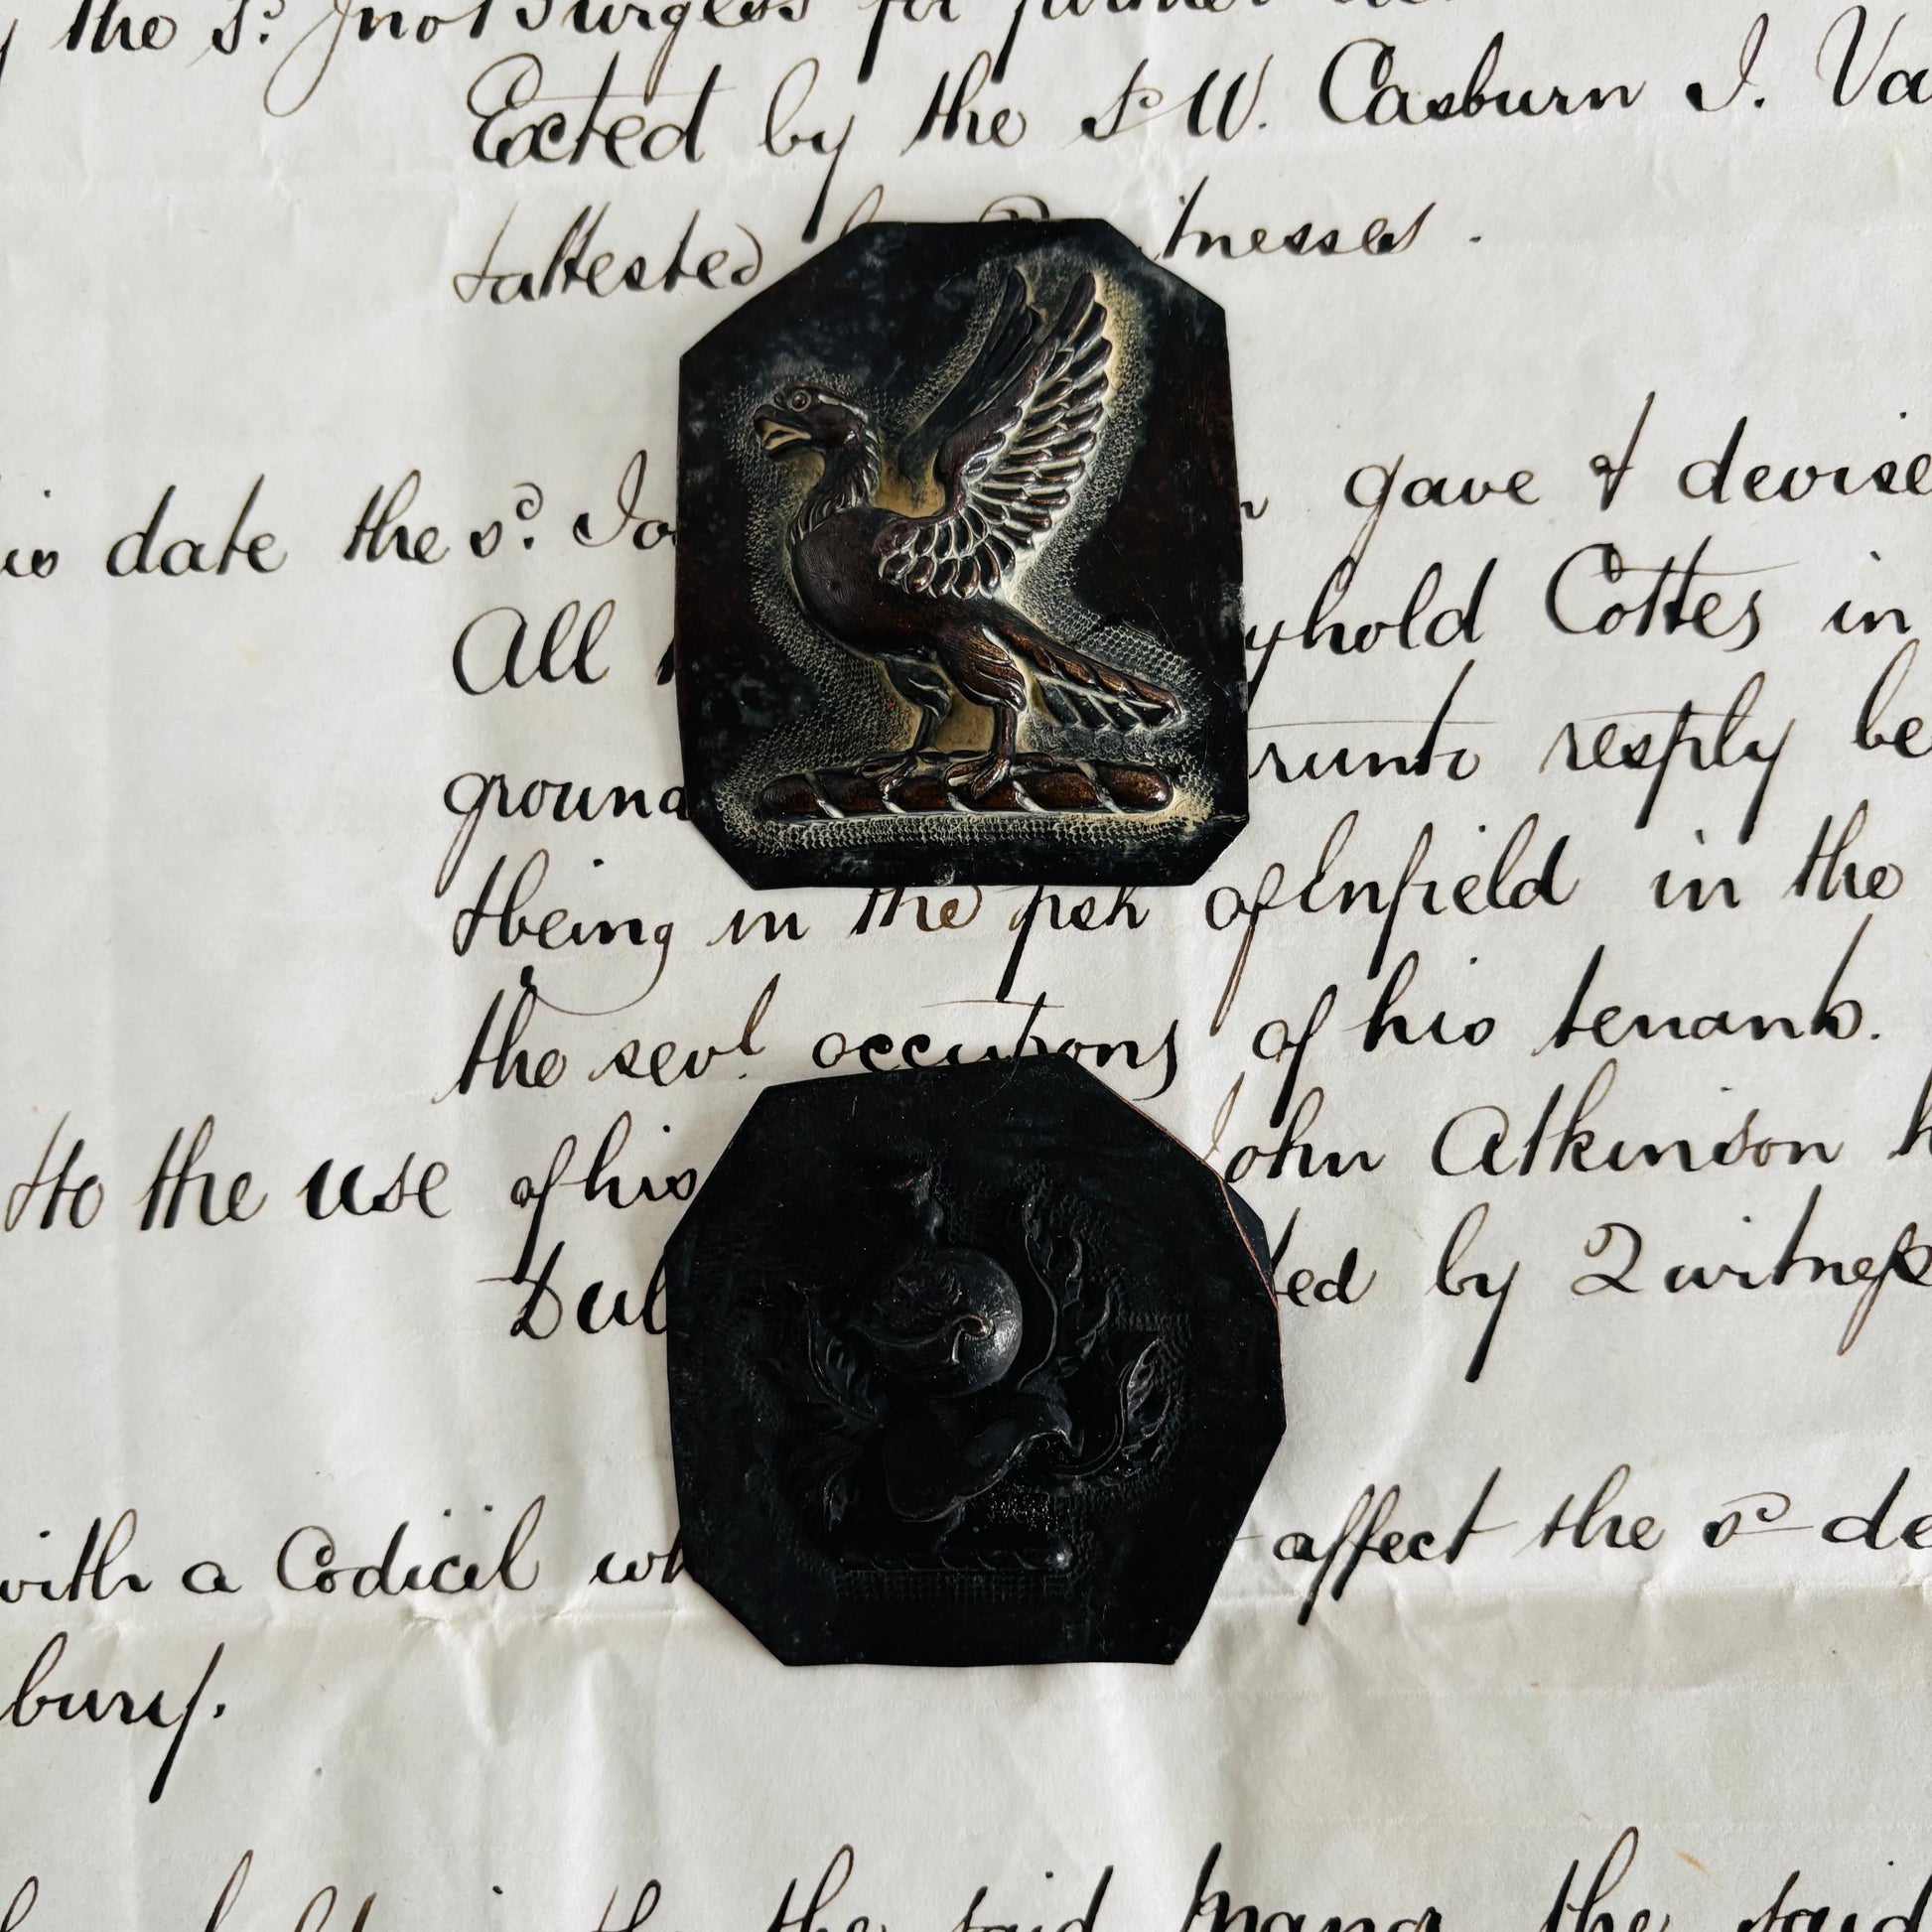 the sd. Jno Burgess for further
Exted by the sd W. Casburn J. Va
& attested by 2 Witnesses.
date the sd. Jo gave & devise
All yhold Cottes in
ground runto resply be
& being in the psh of Enfield in the
the sevl. occupons of his tenants.
To the use of his John Atkinson h
Dul ted by 2 witness
with a Codicil wh affect the sd de
bury.
the said Manor the said